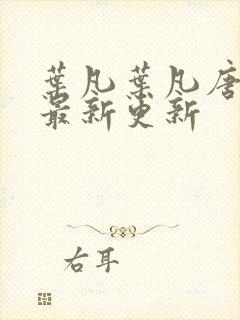 葉凡葉凡唐
最新更新
右耳